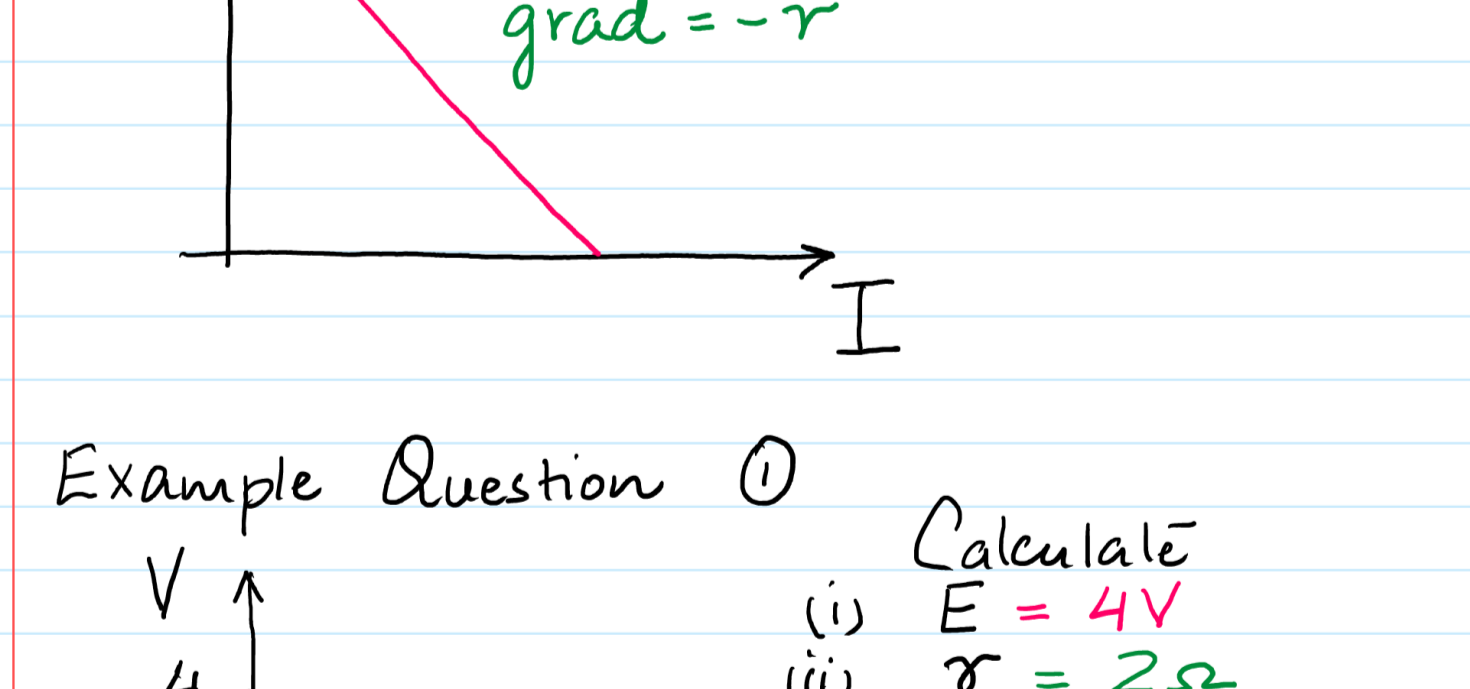 grad = -r
I
Example Question ①
Calculate
V
(i) E = 4V
4
(ii) r = 2Ω